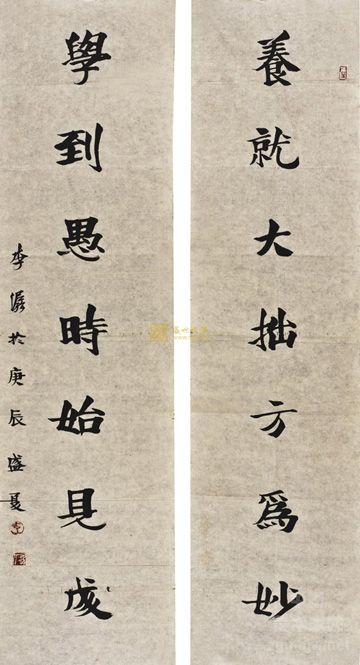 養就大拙方為妙
學到愚時始見成
李潺於庚辰盛夏